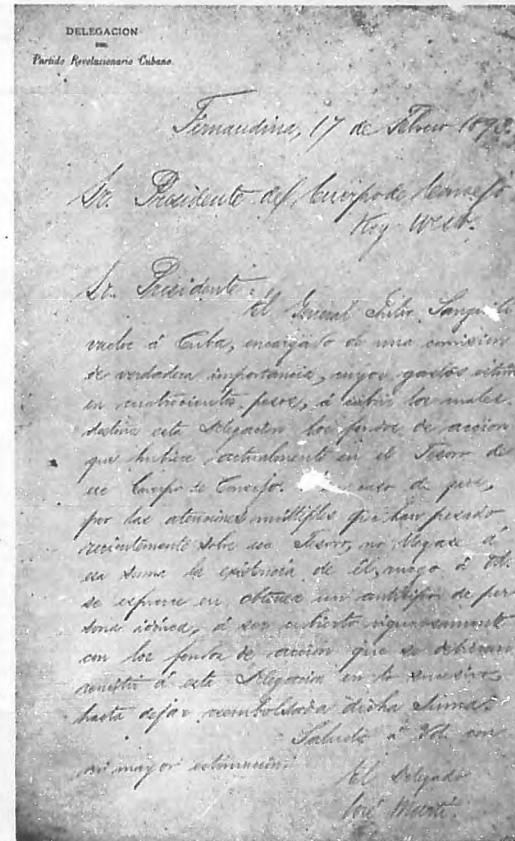 DELEGACION
DEL
Partido Revolucionario Cubano.
Fernandina, 17 de Febrero 1893.
Sr. Presidente del Cuerpo de Consejo
Key West.
Sr. Presidente:
El General Julio Sanguily
vuelve á Cuba, encargado de una comision
de verdadera importancia, cuyos gastos estimo
en cuatrocientos pesos, á cubrir los cuales
destina esta Delegacion los fondos de accion
que hubiere actualmente en el Tesoro de
ese Cuerpo de Consejo. caso de que,
por las atenciones multiples que han pesado
recientemente sobre ese Tesoro, no llegase á
esa suma la existencia de él, ruego á Vd.
se esfuerce en obtener un anticipo de per
sona idónea, á ser cubierto rigurosamente
con los fondos de accion que se debieran
remitir á esta Delegacion en lo sucesivo,
hasta dejar reembolsada dicha suma.
Saluda á Vd. con
mayor estimacion
El Delegado
José Martí.